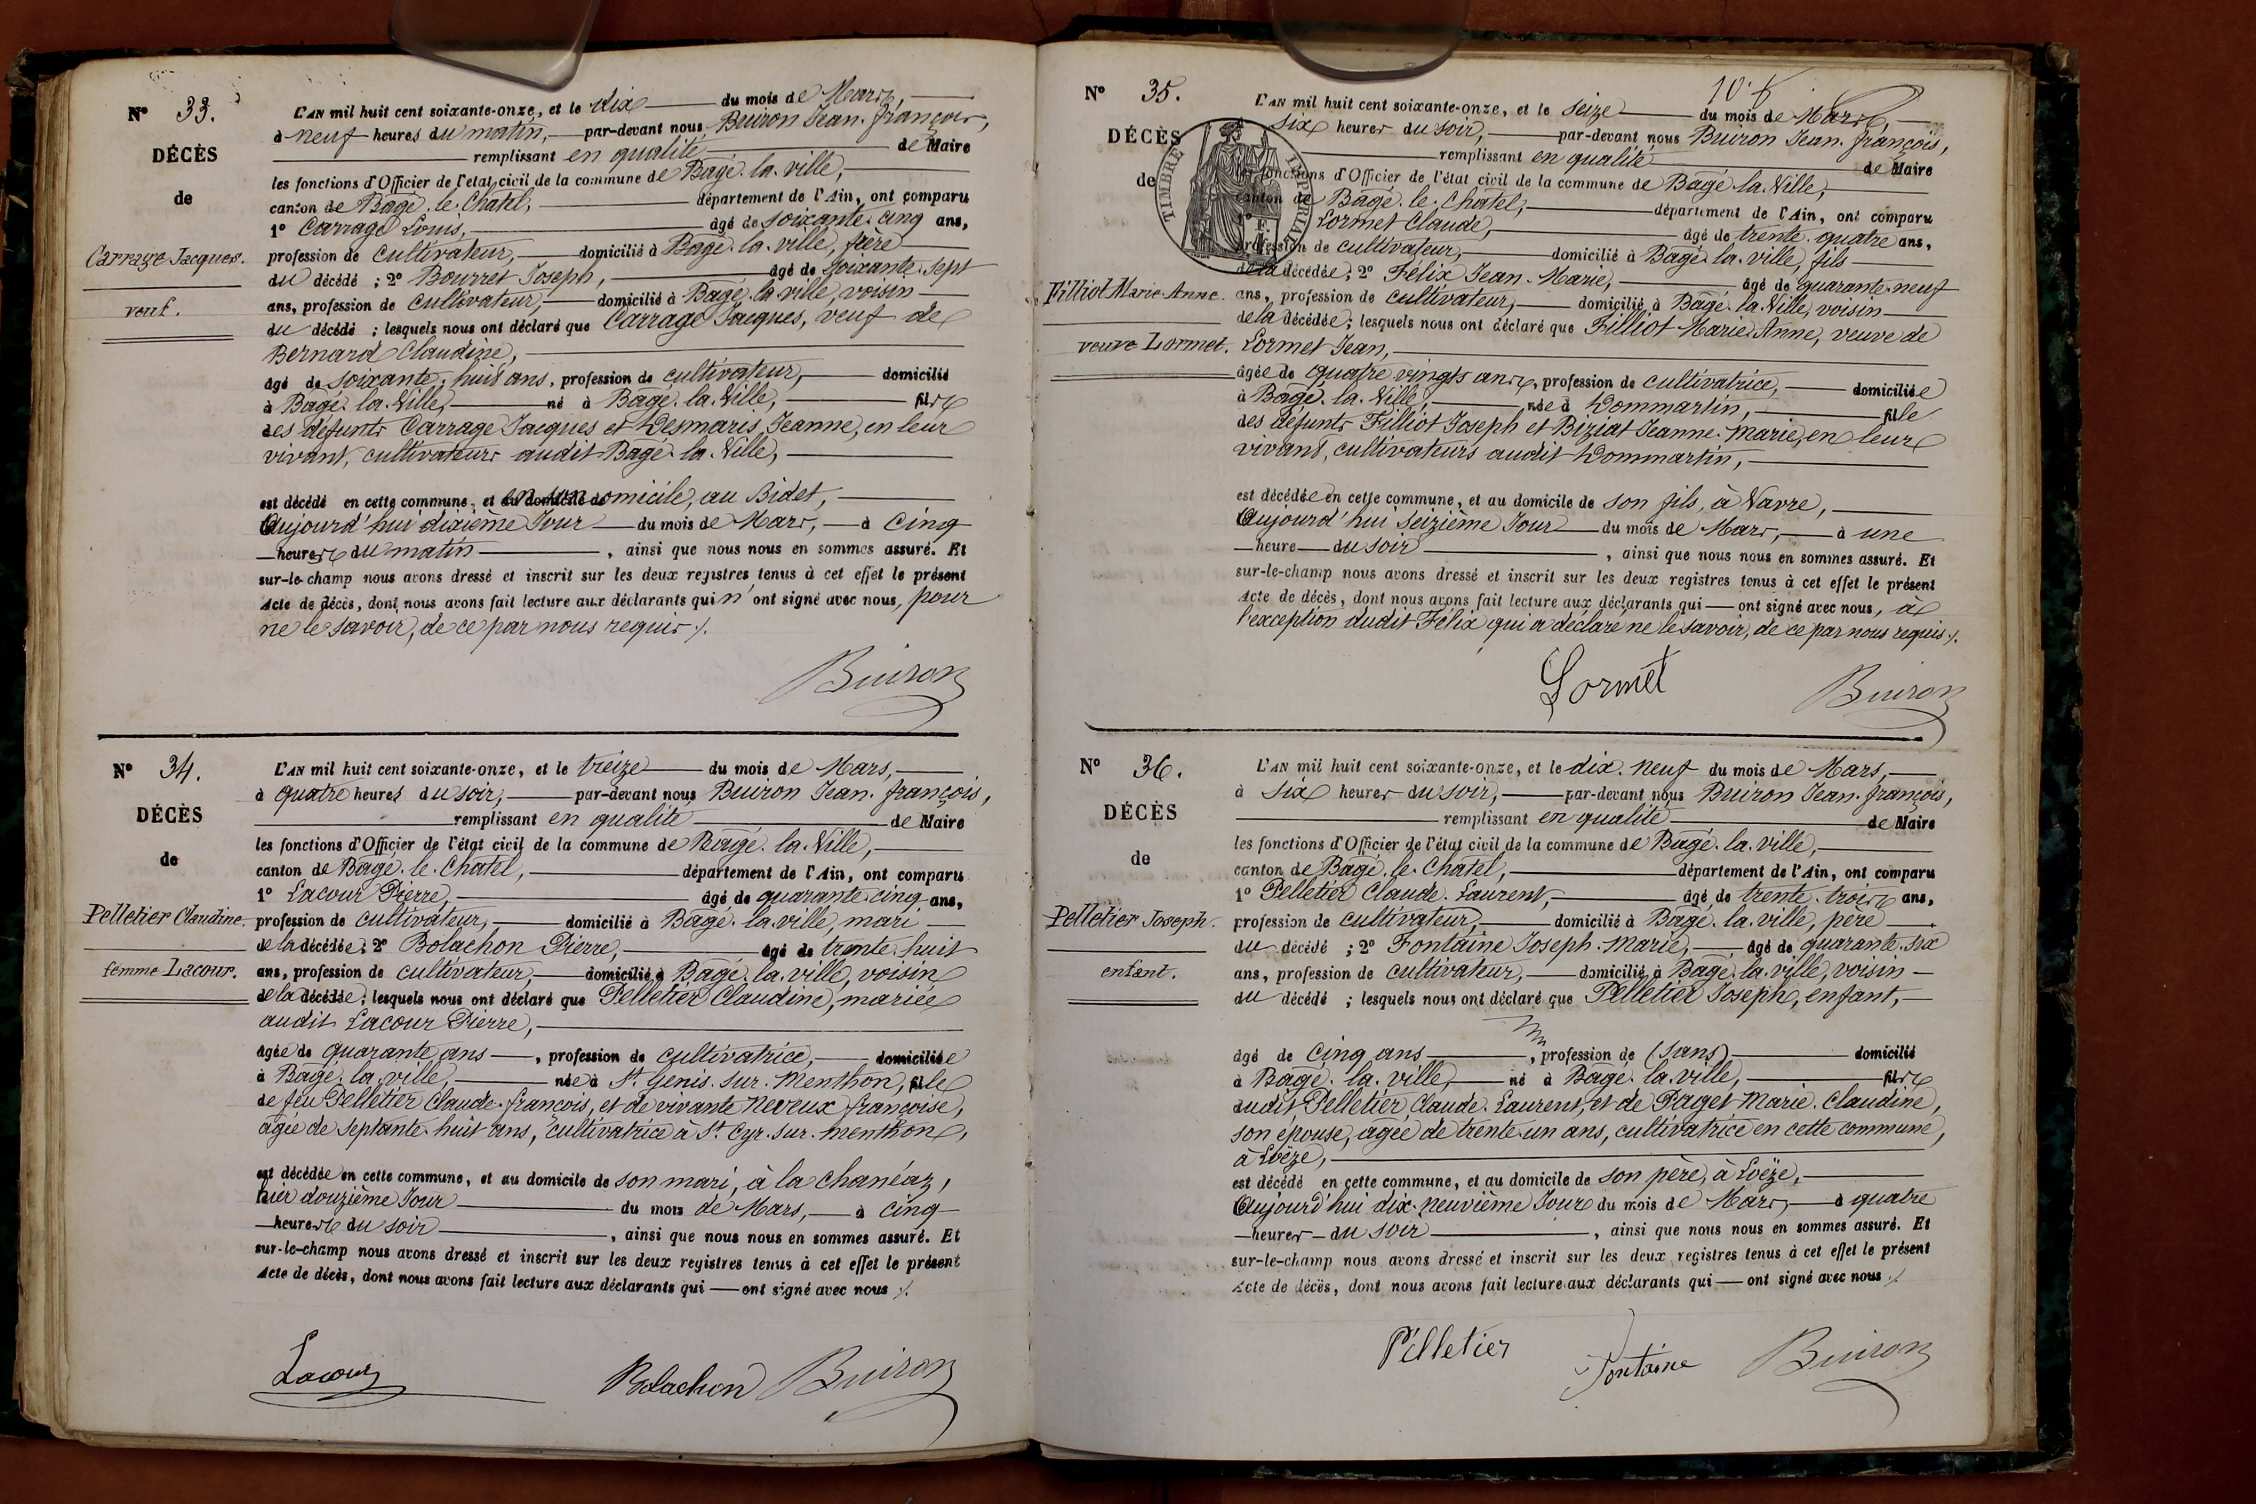 Nº 33.
DÉCÈS
de
Carrage Jacques.
veuf.
L'AN mil huit cent soixante-onze, et le dix du mois de Mars,
à neuf heures du matin, par-devant nous Buiron Jean-françois,
remplissant en qualité de Maire
les fonctions d'Officier de l'état civil de la commune de Bagé-la-ville,
canton de Bagé-le-Chatel, département de l'Ain, ont comparu
1º Carrage Louis, âgé de soixante-cinq ans,
profession de cultivateur, domicilié à Bagé-la-ville, frère
du décédé ; 2º Bourret Joseph, âgé de soixante-sept
ans, profession de cultivateur, domicilié à Bagé-la-ville, voisin
du décédé ; lesquels nous ont déclaré que Carrage Jacques, veuf de
Bernard Claudine,
âgé de soixante-huit ans, profession de cultivateur, domicilié
à Bagé-la-Ville, né à Bagé-la-Ville, fils
des défunts Carrage Jacques et Desmaris Jeanne, en leur
vivant, cultivateurs audit Bagé-la-Ville,
est décédé en cette commune, et au domicile de en son domicile, au Bidet,
Aujourd'hui dixième Jour du mois de Mars, à cinq
heures du matin, ainsi que nous nous en sommes assuré. Et
sur-le-champ nous avons dressé et inscrit sur les deux registres tenus à cet effet le présent
Acte de décès, dont nous avons fait lecture aux déclarants qui n'ont signé avec nous, pour
ne le savoir, de ce par nous requis ./.
Buiron
Nº 34.
DÉCÈS
de
Pelletier Claudine.
femme Lacour.
L'AN mil huit cent soixante-onze, et le treize du mois de Mars,
à quatre heures du soir, par-devant nous Buiron Jean-françois,
remplissant en qualité de Maire
les fonctions d'Officier de l'état civil de la commune de Bagé-la-Ville,
canton de Bagé-le-Chatel, département de l'Ain, ont comparu
1º Lacour Pierre, âgé de quarante-cinq ans,
profession de cultivateur, domicilié à Bagé-la-ville, mari
de la décédée ; 2º Bolachon Pierre, âgé de trente-huit
ans, profession de cultivateur, domicilié à Bagé-la-ville, voisin
de la décédée ; lesquels nous ont déclaré que Pelletier Claudine, mariée
audit Lacour Pierre,
âgée de quarante ans, profession de cultivatrice, domiciliée
à Bagé-la-ville, née à St. Genis-sur-Menthon, fille
de feu Pelletier Claude-françois, et de vivante Neveux françoise,
âgée de septante-huit ans, cultivatrice à St Cyr-sur-menthon,
est décédée en cette commune, et au domicile de son mari, à la Chanéaz,
hier douzième Jour du mois de Mars, à cinq
heures du soir, ainsi que nous nous en sommes assuré. Et
sur-le-champ nous avons dressé et inscrit sur les deux registres tenus à cet effet le présent
Acte de décès, dont nous avons fait lecture aux déclarants qui ont signé avec nous ./.
Lacour Bolachon Buiron
Nº 35.
DÉCÈS
de
Filliot Marie-Anne.
veuve Lormet.
TIMBRE IMPÉRIAL
L'AN mil huit cent soixante-onze, et le seize du mois de Mars,
six heures du soir, par-devant nous Buiron Jean-françois,
remplissant en qualité de Maire
les fonctions d'Officier de l'état civil de la commune de Bagé-la-Ville,
canton de Bagé-le-Chatel, département de l'Ain, ont comparu
1º Lormet Claude, âgé de trente-quatre ans,
profession de cultivateur, domicilié à Bagé-la-ville, fils
de la décédée ; 2º Félix Jean-Marie, âgé de quarante-neuf
ans, profession de cultivateur, domicilié à Bagé-la-Ville, voisin
de la décédée ; lesquels nous ont déclaré que Filliot Marie-Anne, veuve de
Lormet Jean,
âgée de quatre-vingts ans, profession de cultivatrice, domiciliée
à Bagé-la-Ville, née à Dommartin, fille
des défunts Filliot Joseph et Biziat Jeanne-Marie, en leur
vivant, cultivateurs audit Dommartin,
est décédée en cette commune, et au domicile de son fils, à Navre,
Aujourd'hui seizième Jour du mois de Mars, à une
heure du soir, ainsi que nous nous en sommes assuré. Et
sur-le-champ nous avons dressé et inscrit sur les deux registres tenus à cet effet le présent
Acte de décès, dont nous avons fait lecture aux déclarants qui ont signé avec nous, à
l'exception dudit Félix qui a déclaré ne le savoir, de ce par nous requis ./.
Lormet Buiron
Nº 36.
DÉCÈS
de
Pelletier Joseph.
enfant.
L'AN mil huit cent soixante-onze, et le dix-neuf du mois de Mars,
à six heures du soir, par-devant nous Buiron Jean-françois,
remplissant en qualité de Maire
les fonctions d'Officier de l'état civil de la commune de Bagé-la-ville,
canton de Bagé-le-Chatel, département de l'Ain, ont comparu
1º Pelletier Claude-Laurent, âgé de trente-trois ans,
profession de cultivateur, domicilié à Bagé-la-ville, père
du décédé ; 2º Fontaine Joseph-Marie, âgé de quarante-six
ans, profession de cultivateur, domicilié à Bagé-la-ville, voisin
du décédé ; lesquels nous ont déclaré que Pelletier Joseph, enfant,
âgé de cinq ans, profession de (sans) domicilié
à Bagé-la-ville, né à Bagé-la-ville, fils
dudit Pelletier Claude-Laurent, et de Paget Marie-Claudine,
son épouse, âgée de trente-un ans, cultivatrice en cette commune,
à Loëze,
est décédé en cette commune, et au domicile de son père, à Loëze,
Aujourd'hui dix-neuvième Jour du mois de Mars, à quatre
heures du soir, ainsi que nous nous en sommes assuré. Et
sur-le-champ nous avons dressé et inscrit sur les deux registres tenus à cet effet le présent
Acte de décès, dont nous avons fait lecture aux déclarants qui ont signé avec nous ./.
Pelletier Fontaine Buiron